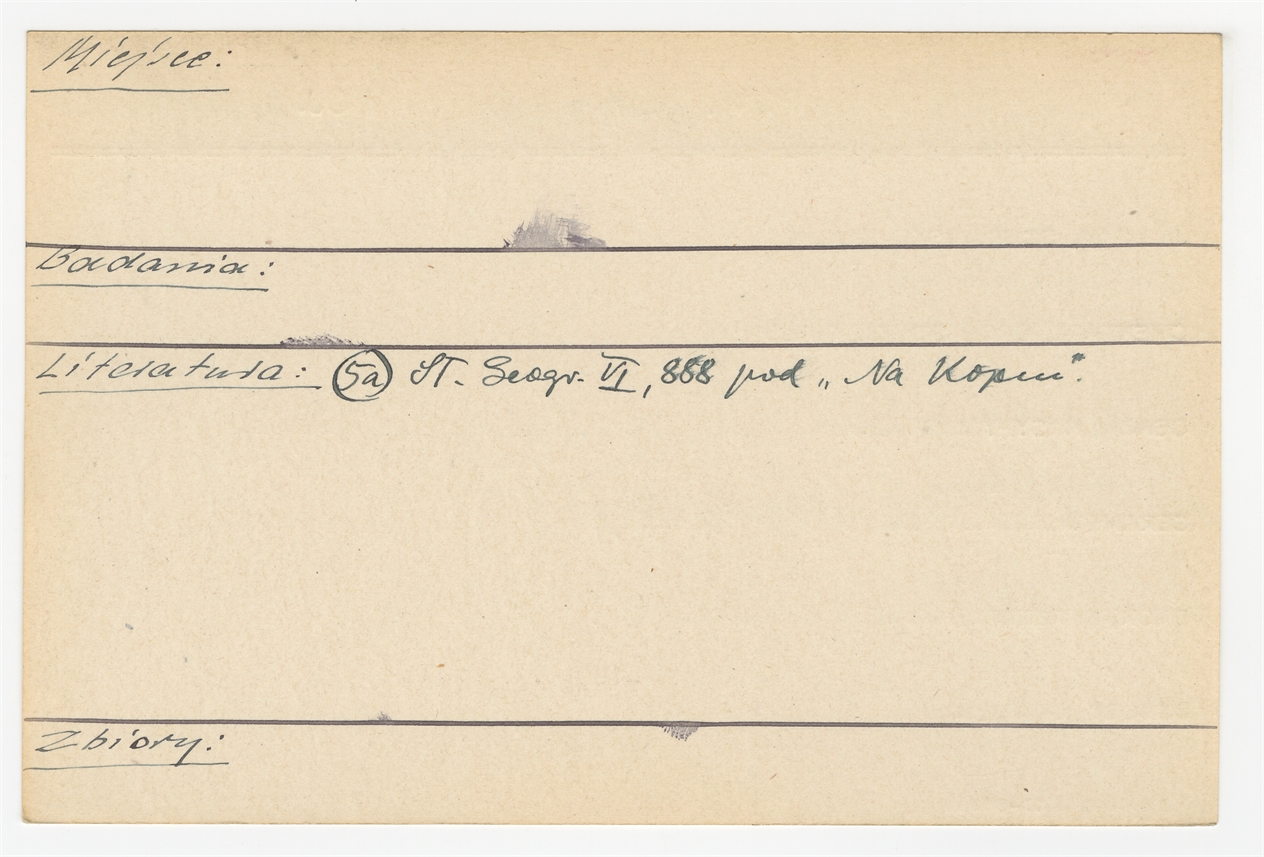 Miejsce:
Badania:
Literatura: (5a) Sł. Geogr. VI, 888 pod „Na Kopcu".
Zbiory: